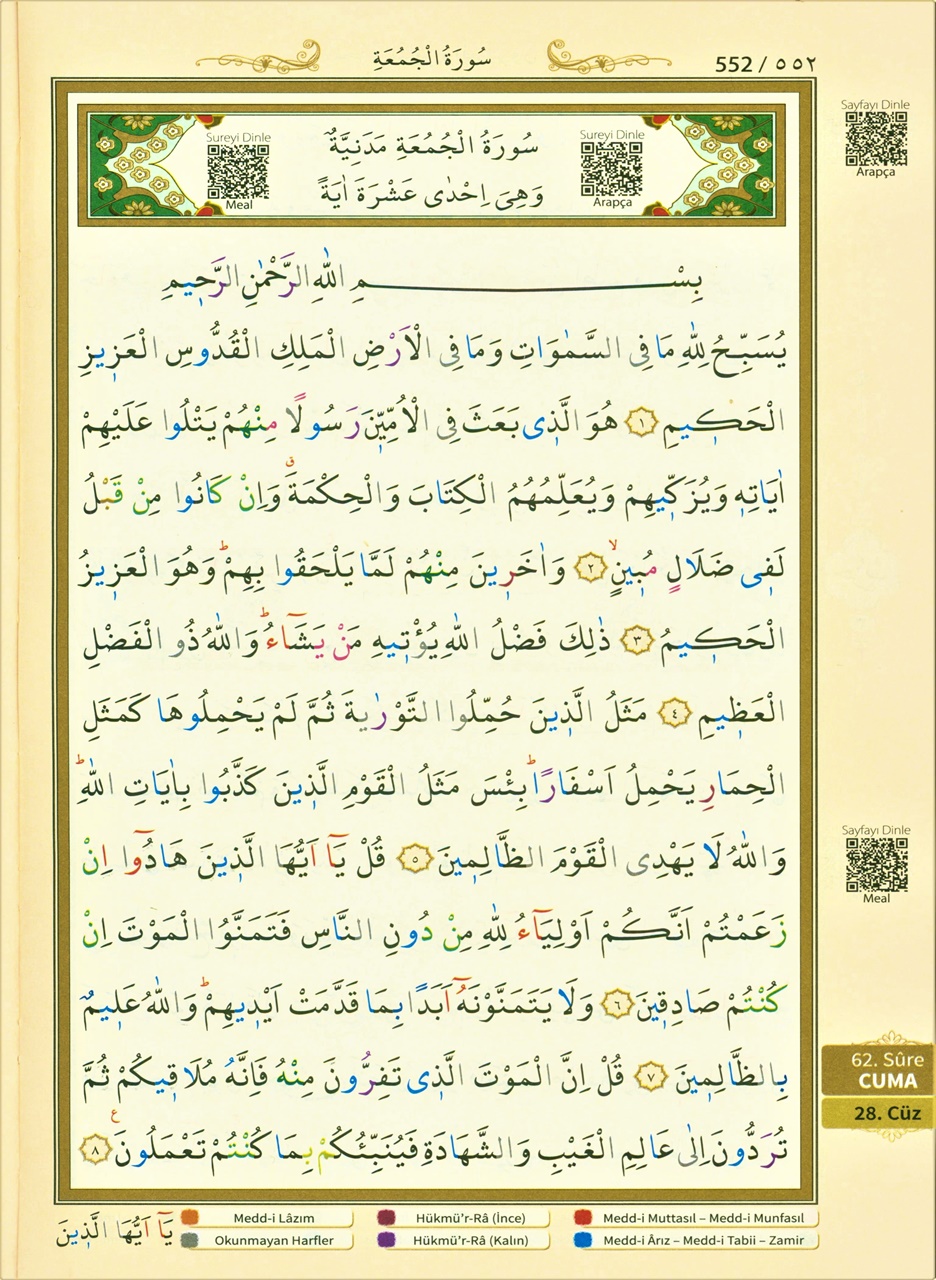 سُورَةُ الْجُمُعَةِ
552 / ٥٥٢
Sureyi Dinle
Meal
سُورَةُ الْجُمُعَةِ مَدَنِيَّةٌ
وَهِىَ اِحْدٰى عَشْرَةَ اٰيَةً
Sureyi Dinle
Arapça
Sayfayı Dinle
Arapça
بِسْمِ اللّٰهِ الرَّحْمٰنِ الرَّحٖيمِ
يُسَبِّحُ لِلّٰهِ مَا فِى السَّمٰوَاتِ وَمَا فِى الْاَرْضِ الْمَلِكِ الْقُدُّوسِ الْعَزٖيزِ
الْحَكٖيمِ ﴿١﴾ هُوَ الَّذٖى بَعَثَ فِى الْاُمِّيّٖنَ رَسُولًا مِنْهُمْ يَتْلُوا عَلَيْهِمْ
اٰيَاتِهٖ وَيُزَكّٖيهِمْ وَيُعَلِّمُهُمُ الْكِتَابَ وَالْحِكْمَةَ ق وَاِنْ كَانُوا مِنْ قَبْلُ
لَفٖى ضَلَالٍ مُبٖينٍ ۙ ﴿٢﴾ وَاٰخَرٖينَ مِنْهُمْ لَمَّا يَلْحَقُوا بِهِمْ ط وَهُوَ الْعَزٖيزُ
الْحَكٖيمُ ﴿٣﴾ ذٰلِكَ فَضْلُ اللّٰهِ يُؤْتٖيهِ مَنْ يَشَٓاءُ ط وَاللّٰهُ ذُو الْفَضْلِ
الْعَظٖيمِ ﴿٤﴾ مَثَلُ الَّذٖينَ حُمِّلُوا التَّوْرٰيةَ ثُمَّ لَمْ يَحْمِلُوهَا كَمَثَلِ
الْحِمَارِ يَحْمِلُ اَسْفَارًا ط بِئْسَ مَثَلُ الْقَوْمِ الَّذٖينَ كَذَّبُوا بِاٰيَاتِ اللّٰهِ ط
وَاللّٰهُ لَا يَهْدِى الْقَوْمَ الظَّالِمٖينَ ﴿٥﴾ قُلْ يَٓا اَيُّهَا الَّذٖينَ هَادُٓوا اِنْ
زَعَمْتُمْ اَنَّكُمْ اَوْلِيَٓاءُ لِلّٰهِ مِنْ دُونِ النَّاسِ فَتَمَنَّوُا الْمَوْتَ اِنْ
كُنْتُمْ صَادِقٖينَ ﴿٦﴾ وَلَا يَتَمَنَّوْنَهُٓ اَبَدًا بِمَا قَدَّمَتْ اَيْدٖيهِمْ ط وَاللّٰهُ عَلٖيمٌ
بِالظَّالِمٖينَ ﴿٧﴾ قُلْ اِنَّ الْمَوْتَ الَّذٖى تَفِرُّونَ مِنْهُ فَاِنَّهُ مُلَاقٖيكُمْ ثُمَّ
تُرَدُّونَ اِلٰى عَالِمِ الْغَيْبِ وَالشَّهَادَةِ فَيُنَبِّئُكُمْ بِمَا كُنْتُمْ تَعْمَلُونَ ع ﴿٨﴾
Sayfayı Dinle
Meal
62. Sûre
CUMA
28. Cüz
يَٓا اَيُّهَا الَّذٖينَ
Medd-i Lâzım
Hükmü’r-Râ (İnce)
Medd-i Muttasıl – Medd-i Munfasıl
Okunmayan Harfler
Hükmü’r-Râ (Kalın)
Medd-i Ârız – Medd-i Tabii – Zamir